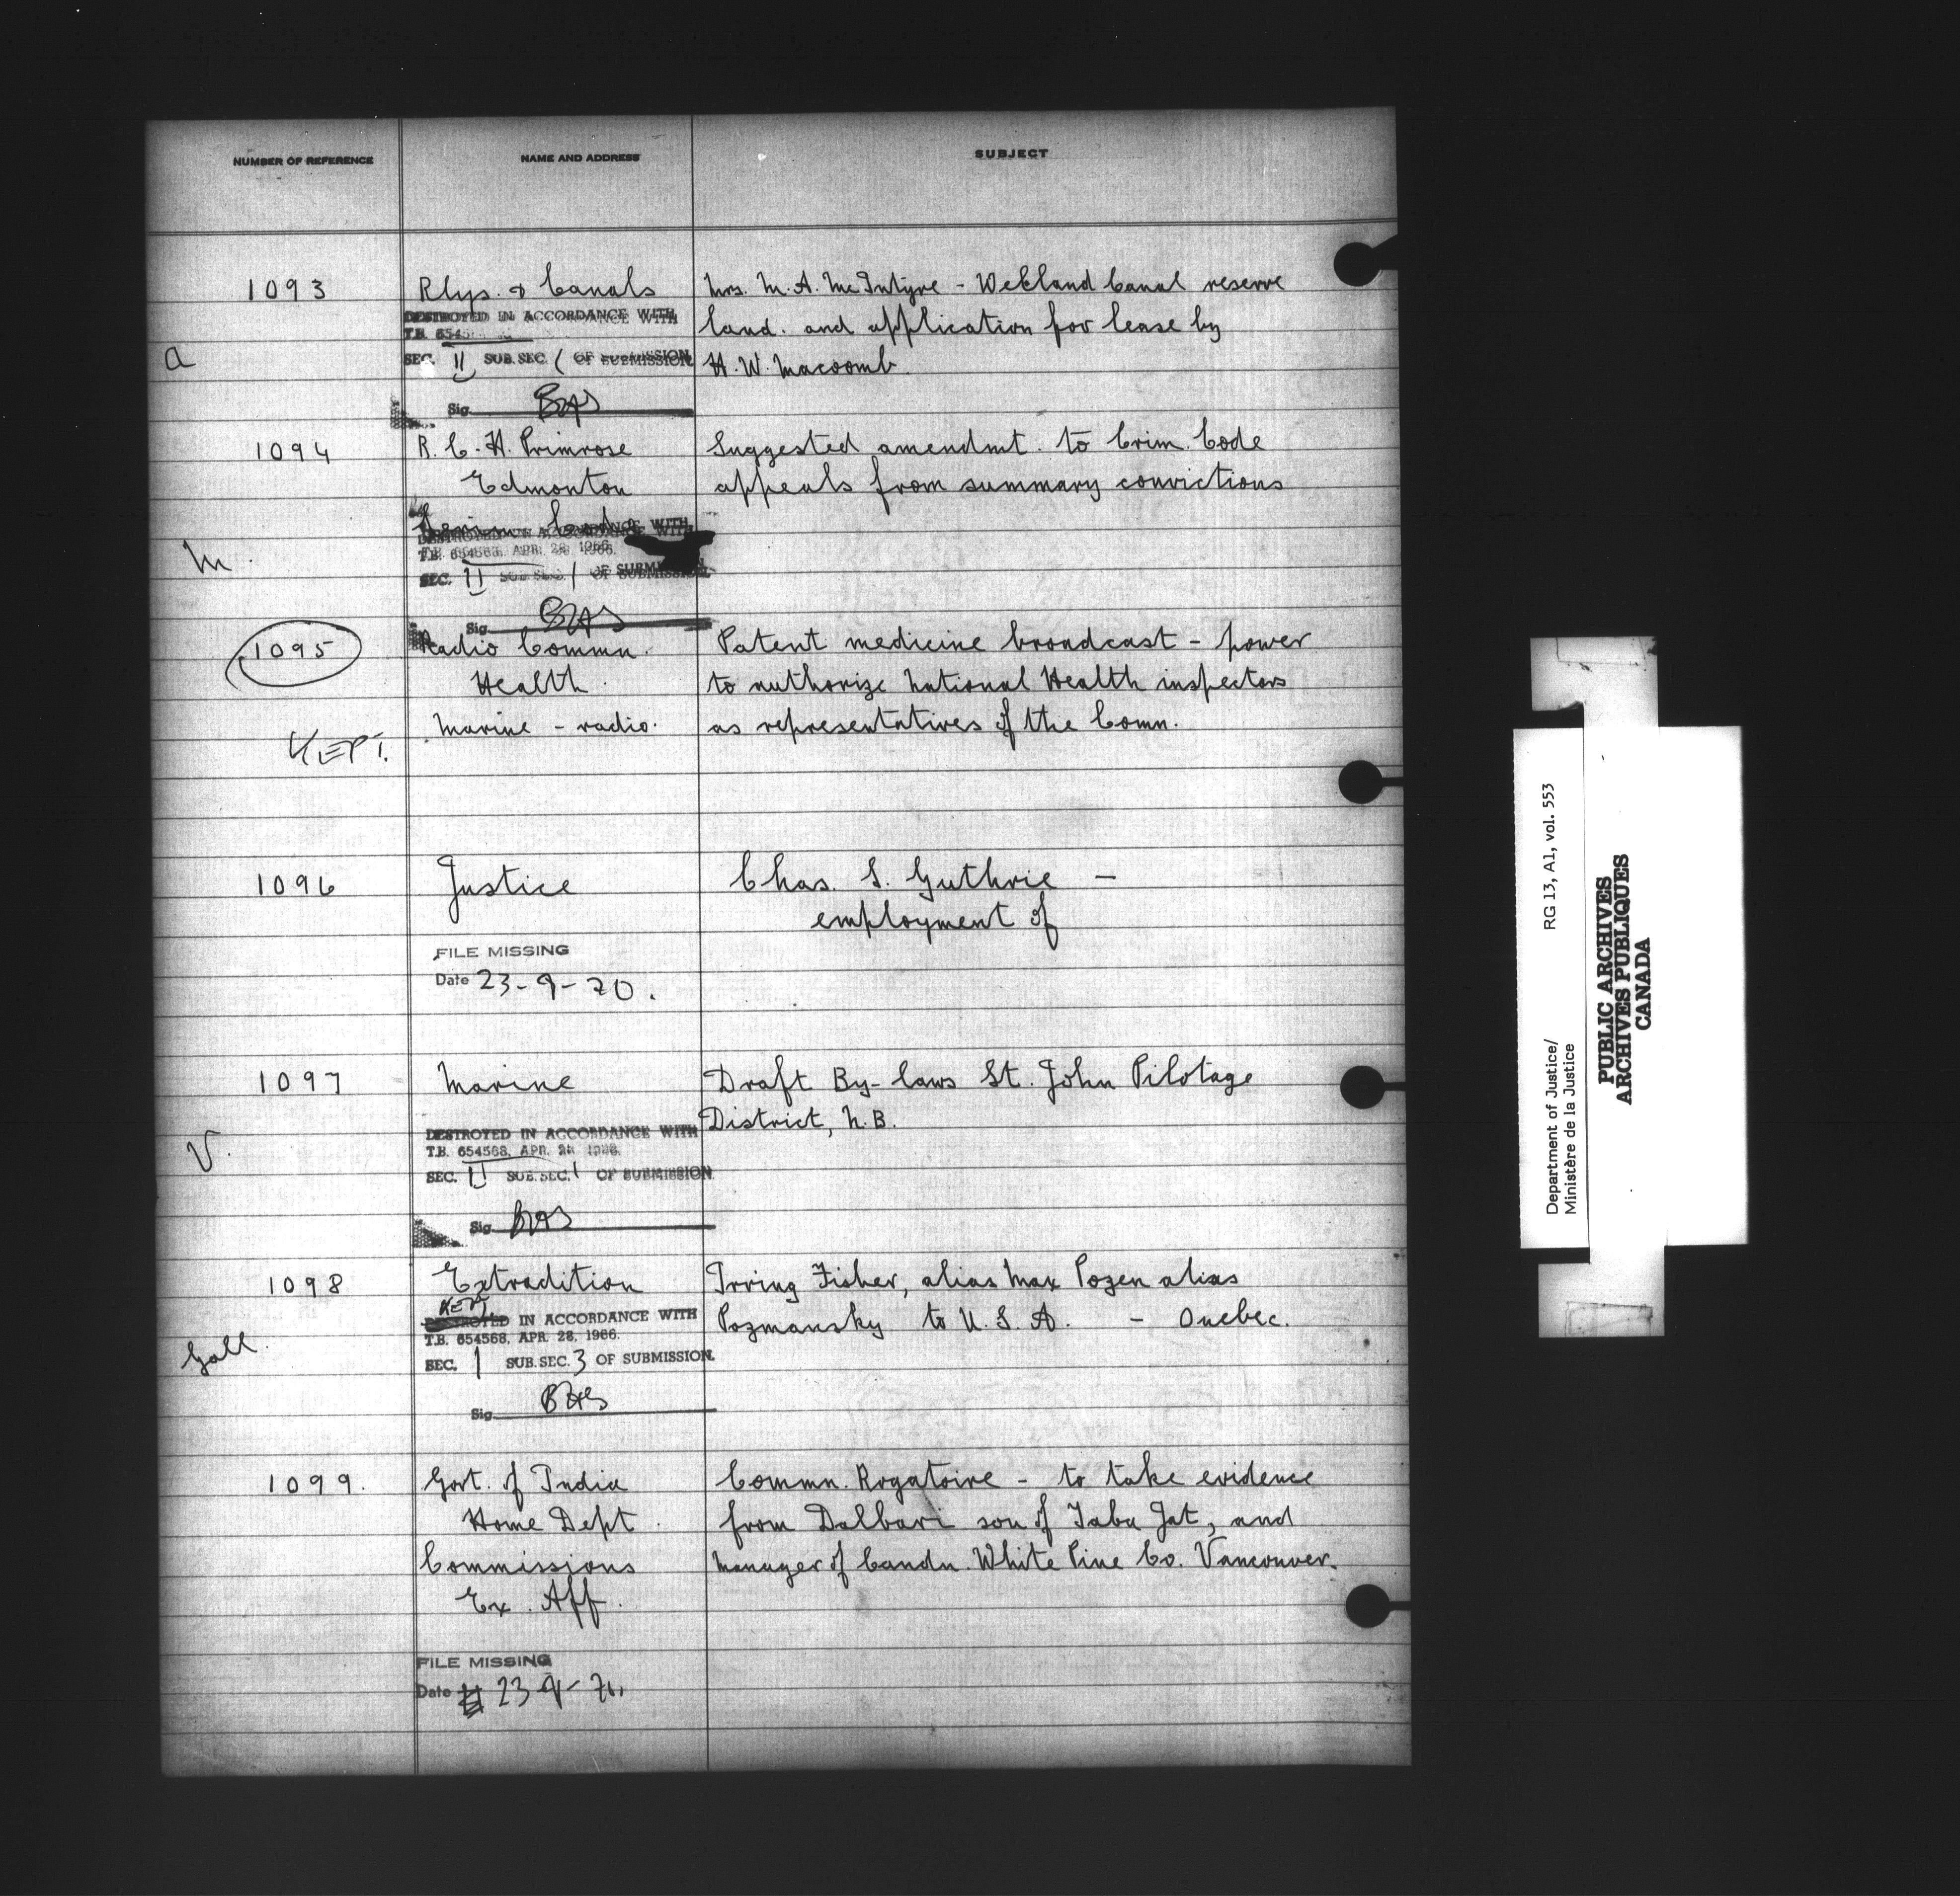 NUMBER OF REFERENCE NAME AND ADDRESS SUBJECT
1093 Rlys. & Canals Mrs. M. A. McIntyre - Welland Canal reserve
DESTROYED IN ACCORDANCE WITH land. and application for lease by
T.B. 6545
a SEC. II SUB. SEC. 1 OF SUBMISSION H. W. Macoomb.
Sig. BAS
1094 R. C. H. Primrose Suggested amendmt. to Crim. Code
Edmonton appeals from summary convictions
Crim. Code
DESTROYED IN ACCORDANCE WITH
m. T.B. 654568, APR. 28, 1966.
SEC. II SUB. SEC. 1 OF SUBMISSION
Sig. BAS
1095 Radio Commn. Patent medicine broadcast - power
Health. to authorize National Health inspectors
Marine - radio. as representatives of the Comn.
KEPT.
1096 Justice Chas. S. Guthrie -
employment of
FILE MISSING
Date 23-9-70.
1097 Marine Draft By-laws St. John Pilotage
District, N.B.
DESTROYED IN ACCORDANCE WITH
V. T.B. 654568, APR. 28, 1966.
SEC. II SUB. SEC. 1 OF SUBMISSION.
Sig. BAS
1098 Extradition Irving Fisher, alias Max Pozen alias
KEPT
DESTROYED IN ACCORDANCE WITH Pozmansky to U.S.A. - Quebec.
T.B. 654568, APR. 28, 1966.
SEC. 1 SUB. SEC. 3 OF SUBMISSION.
Sig. BAS
1099. Govt. of India Commn. Rogatoire - to take evidence
Home Dept. from Dalbari son of Jat, and
Commissions manager of Candn. White Pine Co. Vancouver.
Ex. Aff.
FILE MISSING
Date 23-9-70.
Department of Justice/ RG 13, A1, vol. 553
Ministère de la Justice
PUBLIC ARCHIVES
ARCHIVES PUBLIQUES
CANADA